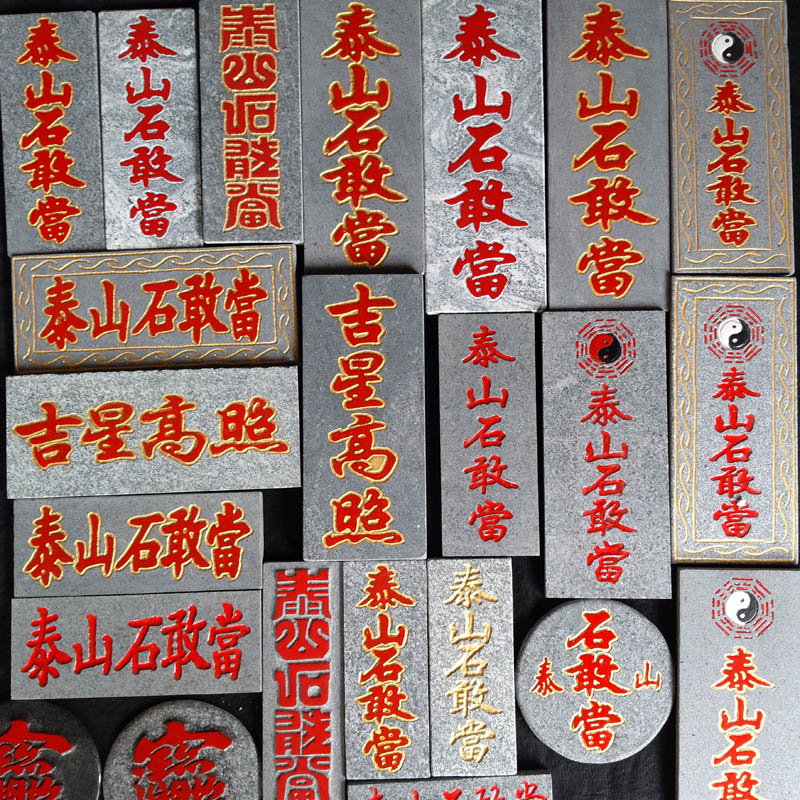 泰山石敢當
泰山石敢當
泰山石敢當
泰山石敢當
泰山石敢當
泰山石敢當
泰山石敢當
泰山石敢當
吉星高照
吉星高照
泰山石敢當
泰山石敢當
泰山石敢當
泰山石敢當
泰山石敢當
泰山石敢當
泰山石敢當
泰山石敢當
泰山石敢當
石敢當
泰山
泰山石敢
泰山石敢當